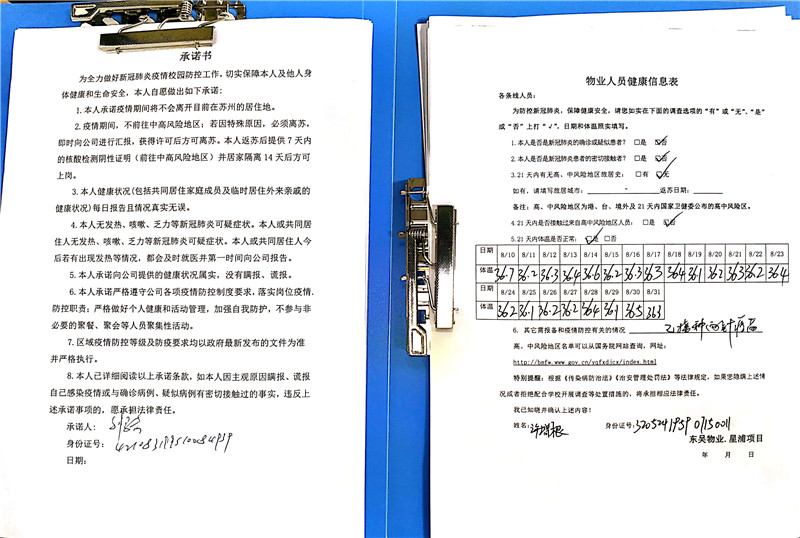 承诺书
为全力做好新冠肺炎疫情校园防控工作，切实保障本人及他人身
体健康和生命安全，本人自愿做出如下承诺：
1.本人承诺疫情期间将不会离开目前在苏州的居住地。
2.疫情期间，不前往中高风险地区；若因特殊原因，必须离苏，
即时向公司进行汇报，获得许可后方可离苏。本人返苏后提供 7 天内
的核酸检测阴性证明（前往中高风险地区）并居家隔离 14 天后方可
上岗。
3.本人健康状况(包括共同居住家庭成员及临时居住外来亲戚的
健康状况)每日报告且情况真实无误。
4.本人无发热、咳嗽、乏力等新冠肺炎可疑症状。本人或共同居
住人无发热、咳嗽、乏力等新冠肺炎可疑症状。本人或共同居住人今
后若有出现发热等情况，都会及时就医并第一时间向公司报告。
5.本人承诺向公司提供的健康状况属实，没有瞒报、谎报。
6.本人承诺严格遵守公司各项疫情防控制度要求，落实岗位疫情
防控职责；严格做好个人健康和活动管理，加强自我防护，不参与非
必要的聚餐、聚会等人员聚集性活动。
7.区域疫情防控等级及防疫要求均以政府最新发布的文件为准
并严格执行。
8.本人已详细阅读以上承诺条款，如本人因主观原因瞒报、谎报
自己感染疫情或与确诊病例、疑似病例有密切接触过的事实，违反上
述承诺事项的，愿承担法律责任。
承诺人：
身份证号：
日期：
物业人员健康信息表
各条线人员：
为防控新冠肺炎，保障健康安全，请您如实在下面的调查选项的“有”或“无”、“是”
或“否”上打“√”，日期和体温照实填写。
1.本人是否是新冠肺炎的确诊或疑似患者？ □是 ☑否
2.本人是否是新冠肺炎患者的密切接触者？ □是 ☑否
3.21 天内有无高、中风险地区旅居史： □有 ☑无
如有，请填写旅居城市： - 返苏日期：
备注：高、中风险地区为港、台、境外及 21 天内国家卫健委公布的高中风险区。
4.21 天内是否接触过来自高中风险地区人员： □是 ☑否
5.21 天内体温是否正常： ☑是 □否
日期 8/10 8/11 8/12 8/13 8/14 8/15 8/16 8/17 8/18 8/19 8/20 8/21 8/22 8/23
体温 36.7 36.2 36.3 36.4 36.6 36.2 36.3 36.3 36.4 36.1 36.2 36.3 36.2 36.4
日期 8/24 8/25 8/26 8/27 8/28 8/29 8/30 8/31
体温 36.2 36.1 36.2 36.2 36.4 36.1 36.5 36.3
6. 其它需报备和疫情防控有关的情况 已接种两针疫苗
高、中风险地区名单可以从国务院网站查询，网址：
http://bmfw.www.gov.cn/yqfxdjcx/index.html
特别提醒：根据《传染病防治法》《治安管理处罚法》等法律规定，如果您隐瞒上述情
况或者拒绝配合学校开展调查等处置措施的，将承担相应法律责任。
我已知晓并确认上述内容！
姓名：许增根 身份证号：
东吴物业.星浦项目
年 月 日